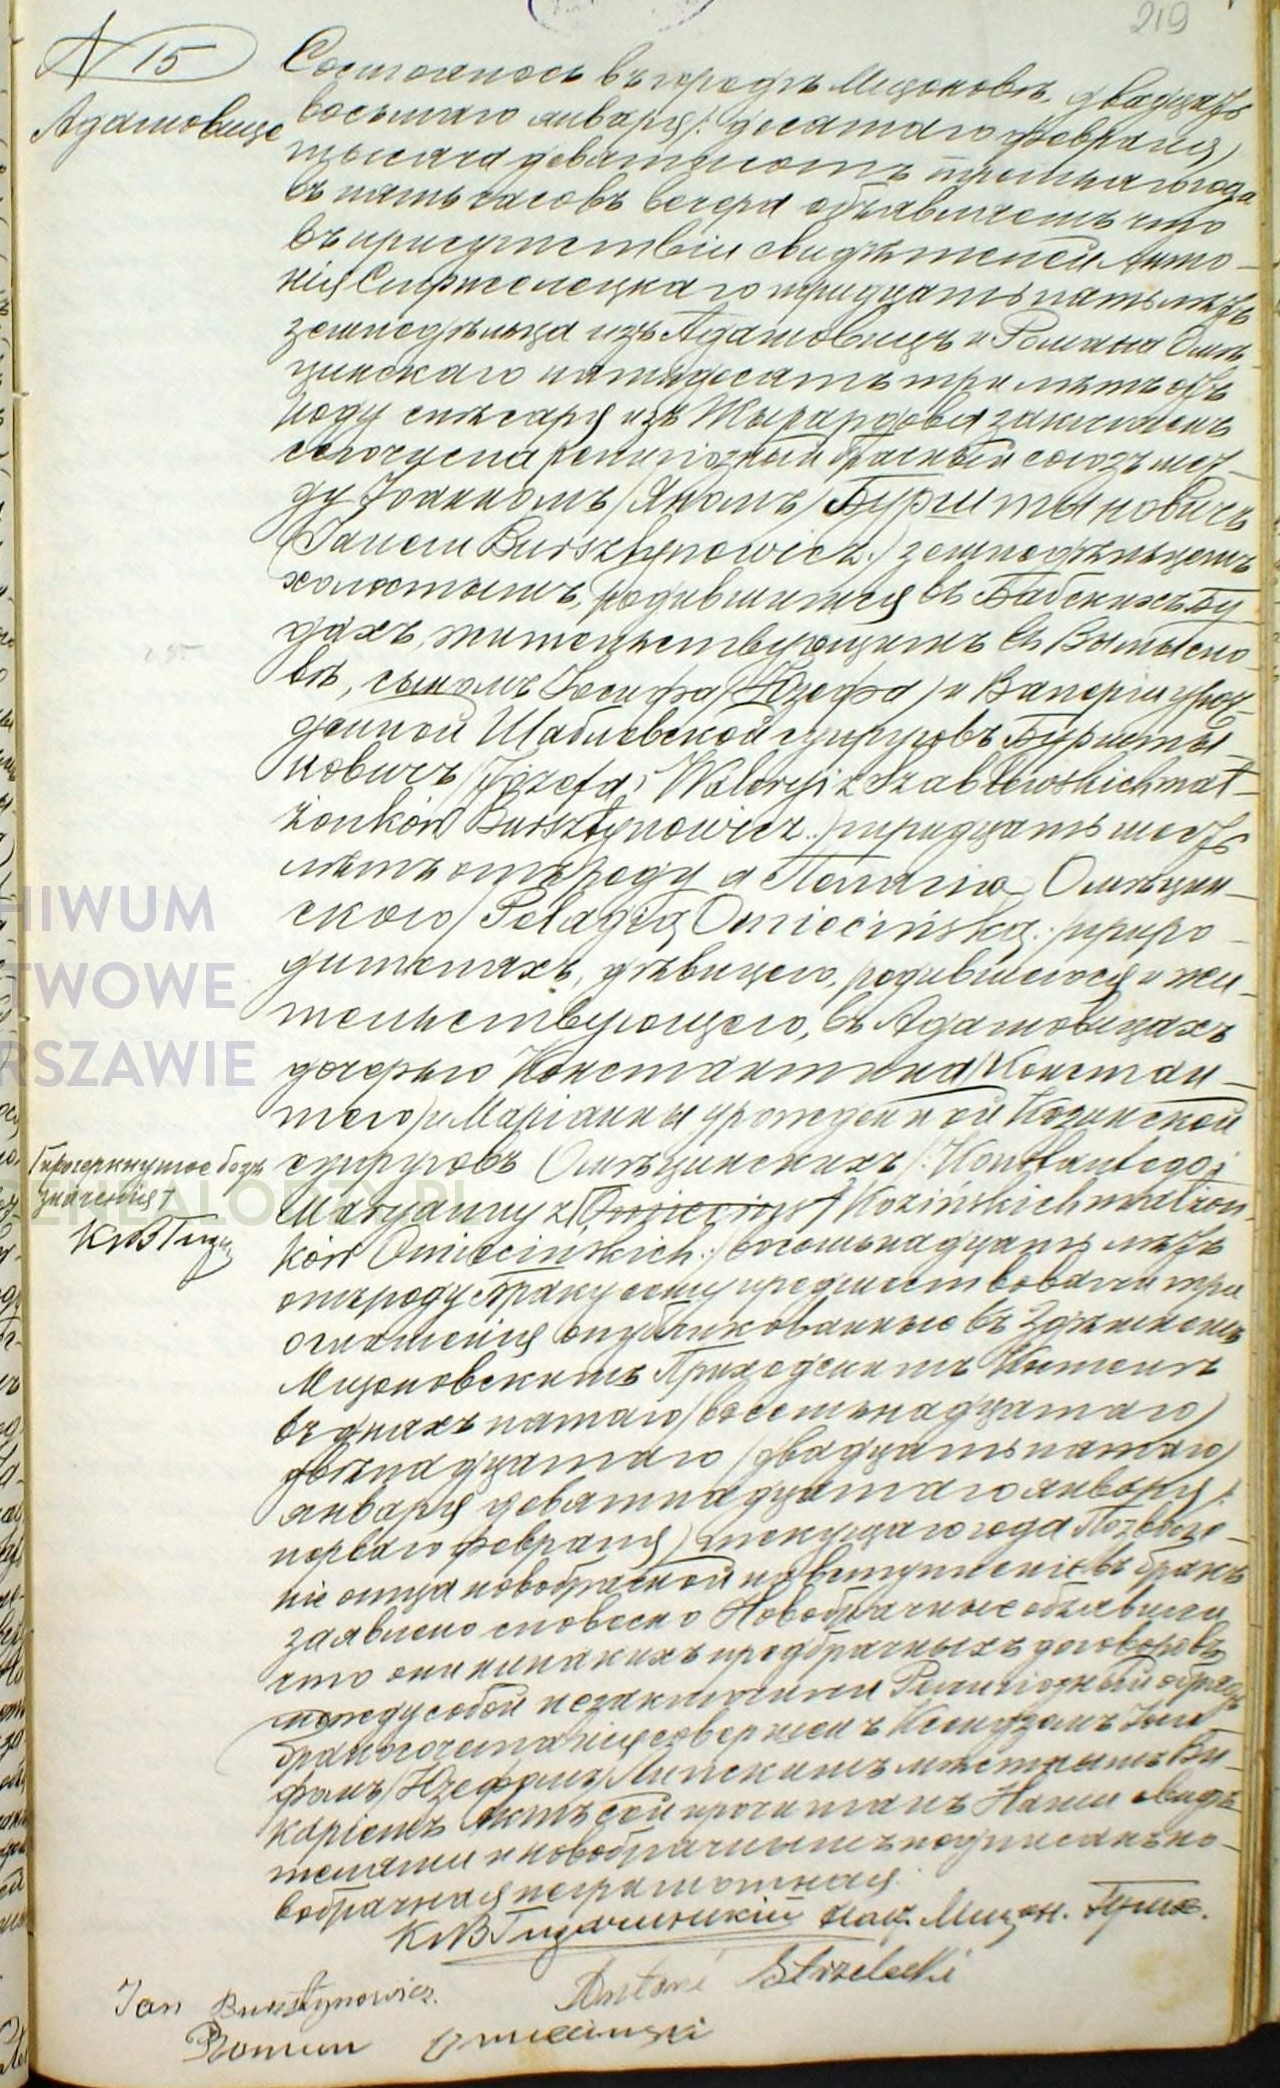 219
N 15
Адамовице
Состоялось въ городѣ Мщоновѣ, двадцать
восьмаго января /: десятаго февраля)
тысяча девятьсотъ третьяго года
въ пять часовъ вечера объявляемъ что
въ присутствіи свидѣтелей Анто-
нія Стржелецкаго тридцать пять лѣтъ
земледѣльца изъ Адамовицъ и Романа Омѣ
цинскаго пятьдесятъ три лѣтъ отъ
роду слѣсаря изъ Жырардова заключенъ
сего числа религіозный брачный союзъ меж-
ду Іоанномъ /Яномъ/ Бурштыновичъ
(Janem Bursztynowicz:) земледѣльцемъ
холостымъ, родившимся въ Бабскихъ Бу
дахъ, жительствующимъ въ
вѣ, сыномъ Іосифа /Юзефа/ и Валеріи урож-
денной Шаблевской супруговъ Буршты-
новичъ /Józefa i Waleryi z Szablewskich mał-
żonków Bursztynowicz.) тридцать шесть
лѣтъ отъ роду а Пелагіею Омѣцин-
скою /Pelagią Omiecińską:/ при ро-
дителяхъ, дѣвицею, родившеюся и жи-
тельствующею, въ Адамовицахъ
дочерью Константина /Констан-
тего/ и Маріанны урожденной Козинской
супруговъ Омѣцинскихъ /:Konstantego i
Maryanny z Kozińskich małżon-
ków Omiecińskich:/ восемьнадцать лѣтъ
отъ роду Браку сему предшествовали три
оглашенія опубликованные въ Здѣшнемъ
Мщоновскимъ Приходскимъ Костелѣ
въ дняхъ пятаго /восемьнадцатаго)
двѣнадцатаго /двадцать пятаго)
января девятнадцатаго января /:
перваго февраля) текущаго года Позволе-
ніе отца новобрачной на вступленіе въ бракъ
заявлено словесно Новобрачные объявили
что они никакихъ предбрачныхъ договоровъ
между собой не заключили Религіозный обрядъ
бракосочетанія совершенъ Ксендзомъ Іоси
фомъ /Юзефомъ/ Липскимъ мѣстнымъ Ви-
каріемъ Актъ сей прочитанъ Нами свидѣ
телями и новобрачнымъ подписанъ но-
вобрачная неграмотная.
Прочеркнутое безъ
значенія
Jan Bursztynowicz.
Antoni Strzelecki
Roman Omiecinski